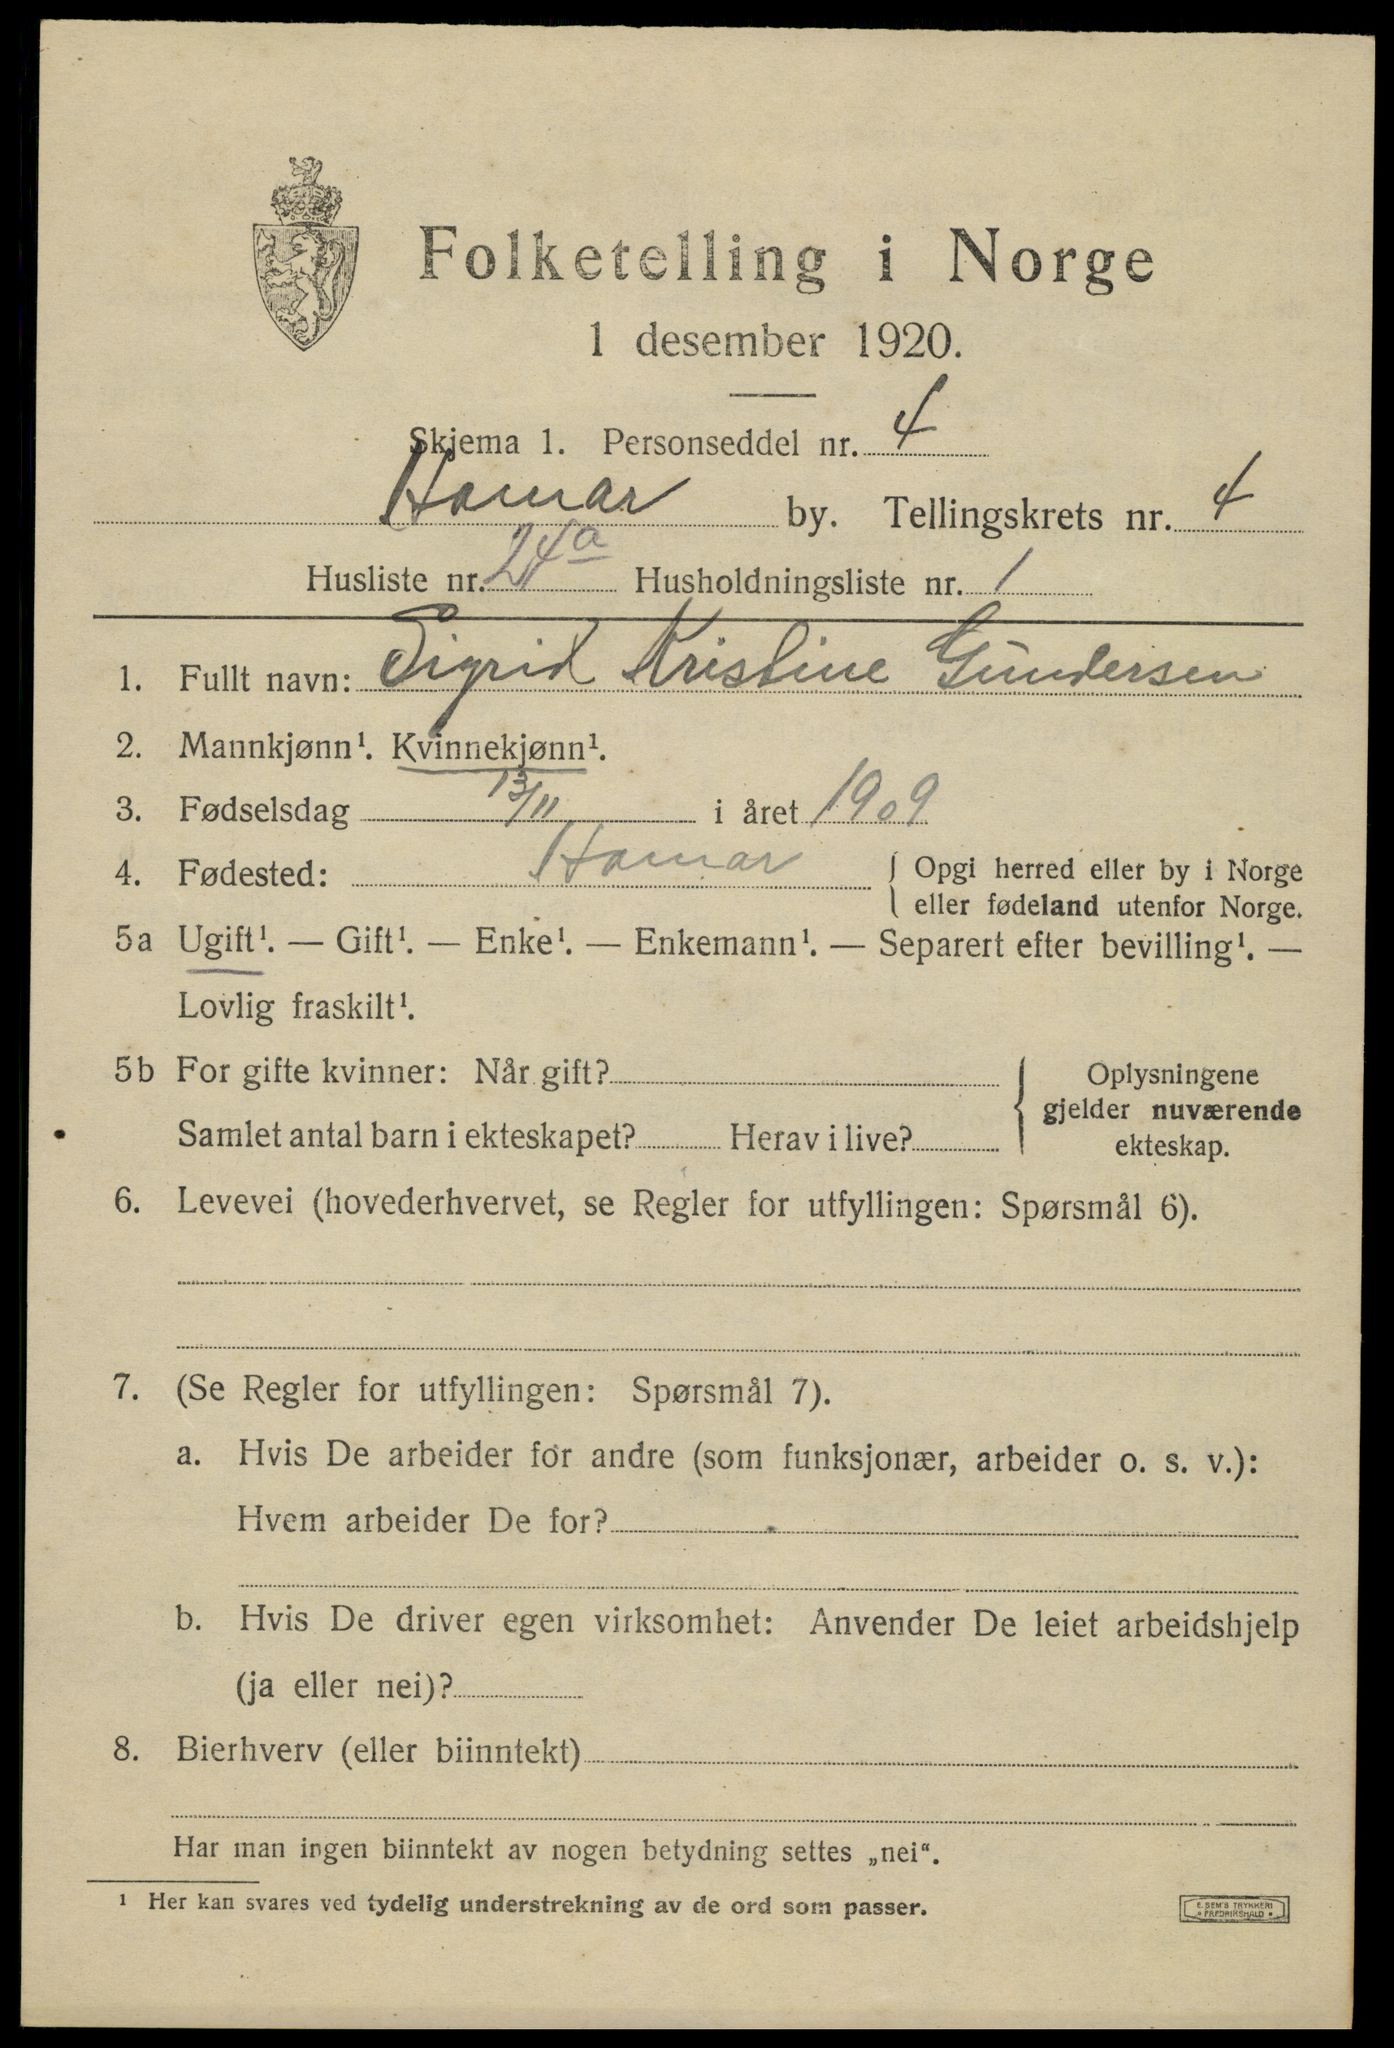 Folketelling i Norge
1 desember 1920.
Skjema 1. Personseddel nr. 4
Hamar by. Tellingskrets nr. 4
Husliste nr. 24a Husholdningsliste nr. 1
1. Fullt navn: Sigrid Kristine Gundersen
2. Mannkjønn¹. Kvinnekjønn¹.
3. Fødselsdag 13/11 i året 1909
4. Fødested: Hamar { Opgi herred eller by i Norge
eller fødeland utenfor Norge.
5a Ugift¹. — Gift¹. — Enke¹. — Enkemann¹. — Separert efter bevilling¹. —
Lovlig fraskilt¹.
5b For gifte kvinner: Når gift?
Samlet antal barn i ekteskapet? Herav i live?
{ Oplysningene
gjelder nuværende
ekteskap.
6. Levevei (hovederhvervet, se Regler for utfyllingen: Spørsmål 6).
7. (Se Regler for utfyllingen: Spørsmål 7).
a. Hvis De arbeider for andre (som funksjonær, arbeider o. s. v.):
Hvem arbeider De for?
b. Hvis De driver egen virksomhet: Anvender De leiet arbeidshjelp
(ja eller nei)?
8. Bierhverv (eller biinntekt)
Har man ingen biinntekt av nogen betydning settes „nei“.
¹ Her kan svares ved tydelig understrekning av de ord som passer.
E. SEM'S TRYKKERI
* FREDRIKSHALD *